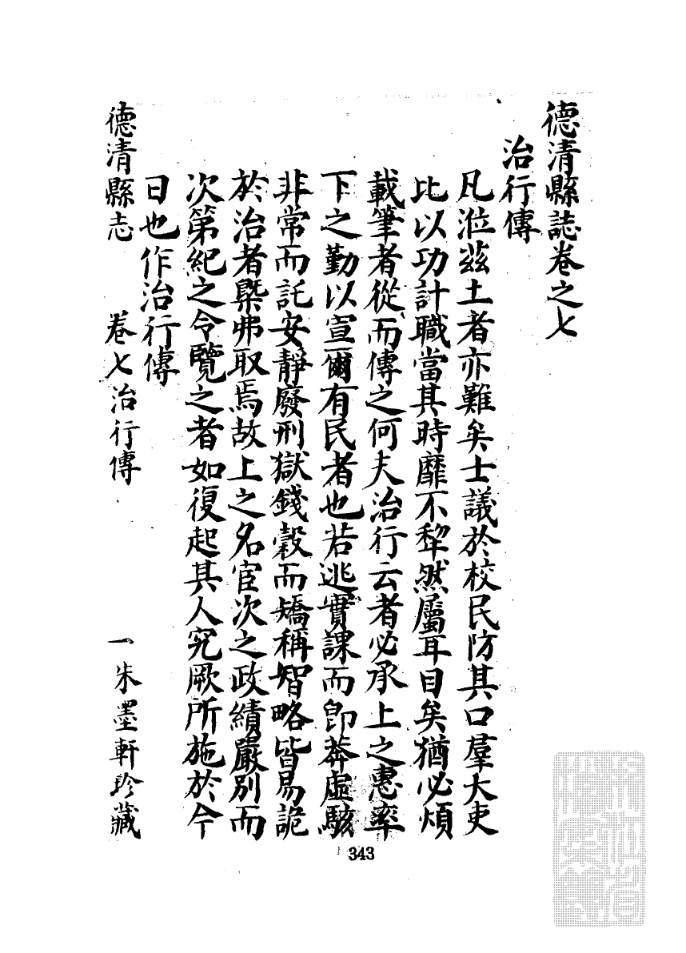 德清縣誌卷之七
治行傳
凡涖茲土者亦難矣士議於校民防其口羣大吏
比以功計職當其時靡不犂然屬耳目矣猶必煩
載筆者從而傳之何夫治行云者必承上之惠率
下之勤以宣爾有民者也若逃實課而卽莽虛駭
非常而託安靜廢刑獄錢穀而矯稱智略皆易詭
於治者槩弗取焉故上之名宦次之政績嚴別而
次第紀之令覽之者如復起其人究厥所施於今
日也作治行傳
德清縣志 卷七治行傳 一 朱墨軒珍藏
343